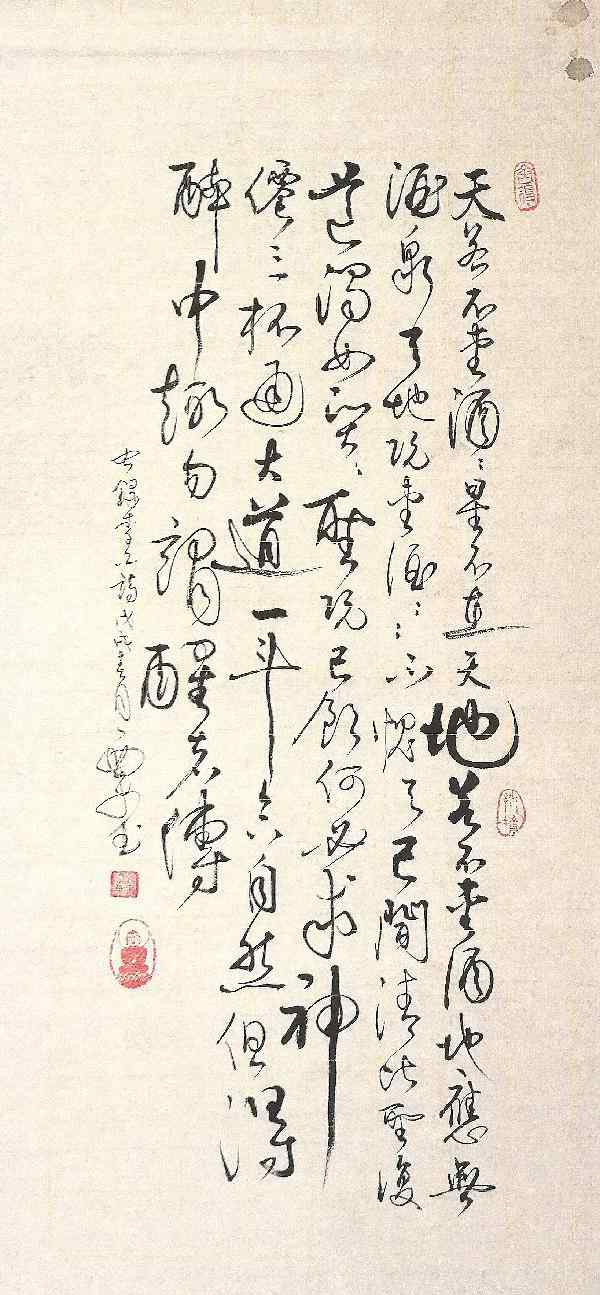 天若不愛酒〻星不在天地若不愛酒地應無
酒泉天地既愛酒〻〻不愧天已聞清比聖復
道濁如賢〻聖既已飲何必求神
僊三杯通大道一斗合自然但得
醉中趣勿謂醒者傳
錄李白詩戊戌春月